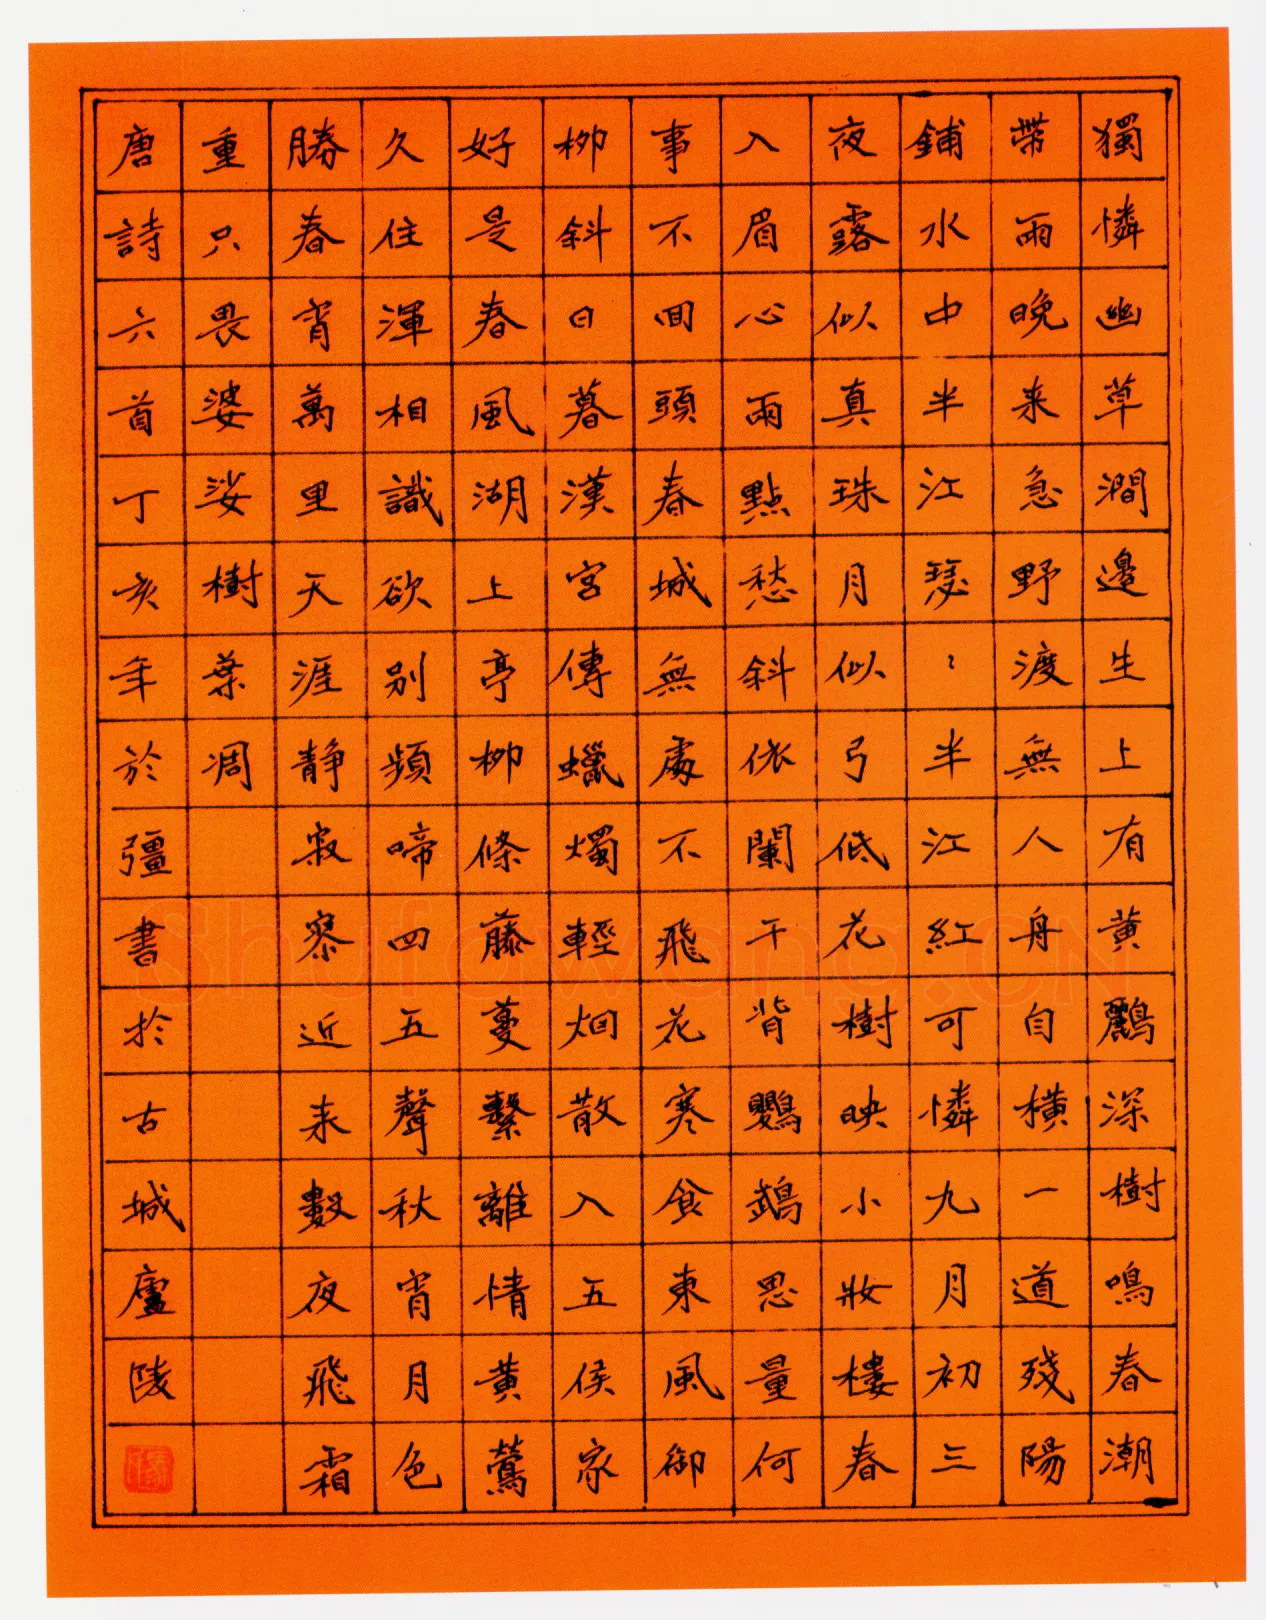 獨憐幽草澗邊生上有黄鸝深樹鳴春潮
帶雨晚来急野渡無人舟自橫一道殘陽
鋪水中半江瑟〻半江紅可憐九月初三
夜露似真珠月似弓低花樹映小妝樓春
入眉心雨點愁斜依闌干背鸚鵡思量何
事不回頭春城無處不飛花寒食東風御
柳斜日暮漢宮傳蠟燭輕烟散入五侯家
好是春風湖上亭柳條藤蔓繫離情黄鶯
久住渾相識欲別頻啼四五聲秋宵月色
勝春宵萬里天涯静寂寥近来數夜飛霜
重只畏婆娑樹葉凋
唐詩六首丁亥年於彊書於古城廬陵
Shufawang.CN